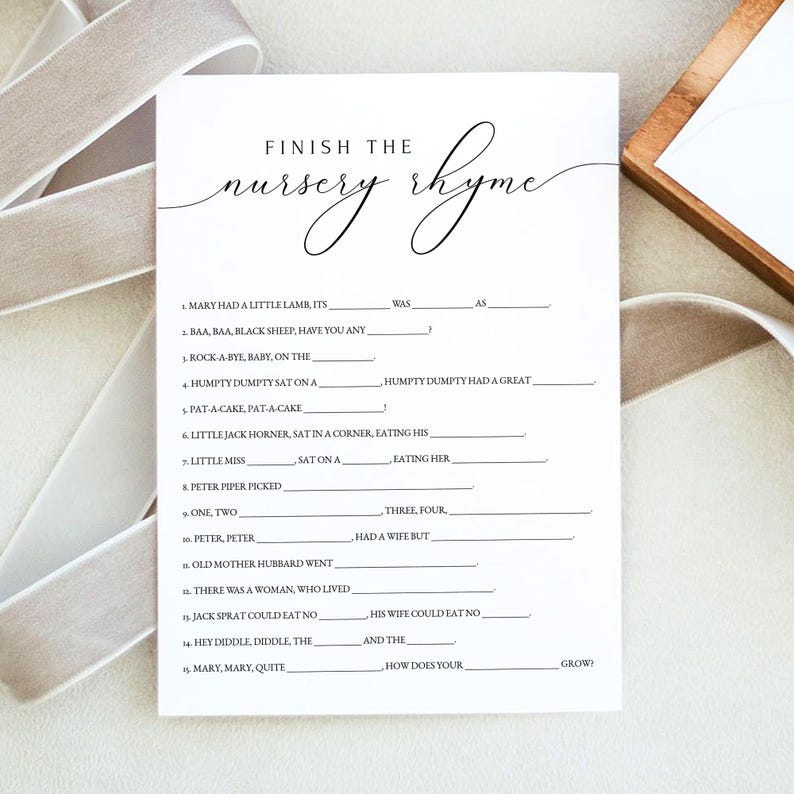 FINISH THE
nursery rhyme
1. MARY HAD A LITTLE LAMB, ITS ____________ WAS ____________ AS ____________.
2. BAA, BAA, BLACK SHEEP, HAVE YOU ANY ____________?
3. ROCK-A-BYE, BABY, ON THE ____________.
4. HUMPTY DUMPTY SAT ON A ____________, HUMPTY DUMPTY HAD A GREAT ____________.
5. PAT-A-CAKE, PAT-A-CAKE ________________!
6. LITTLE JACK HORNER, SAT IN A CORNER, EATING HIS ___________________.
7. LITTLE MISS _________, SAT ON A _________, EATING HER ___________________.
8. PETER PIPER PICKED ______________________________________.
9. ONE, TWO ____________________________, THREE, FOUR, ____________________________.
10. PETER, PETER ___________________, HAD A WIFE BUT ____________________________.
11. OLD MOTHER HUBBARD WENT ____________________________.
12. THERE WAS A WOMAN, WHO LIVED ____________________________.
13. JACK SPRAT COULD EAT NO _________, HIS WIFE COULD EAT NO _________.
14. HEY DIDDLE, DIDDLE, THE _________ AND THE _________.
15. MARY, MARY, QUITE ___________________, HOW DOES YOUR ___________________ GROW?